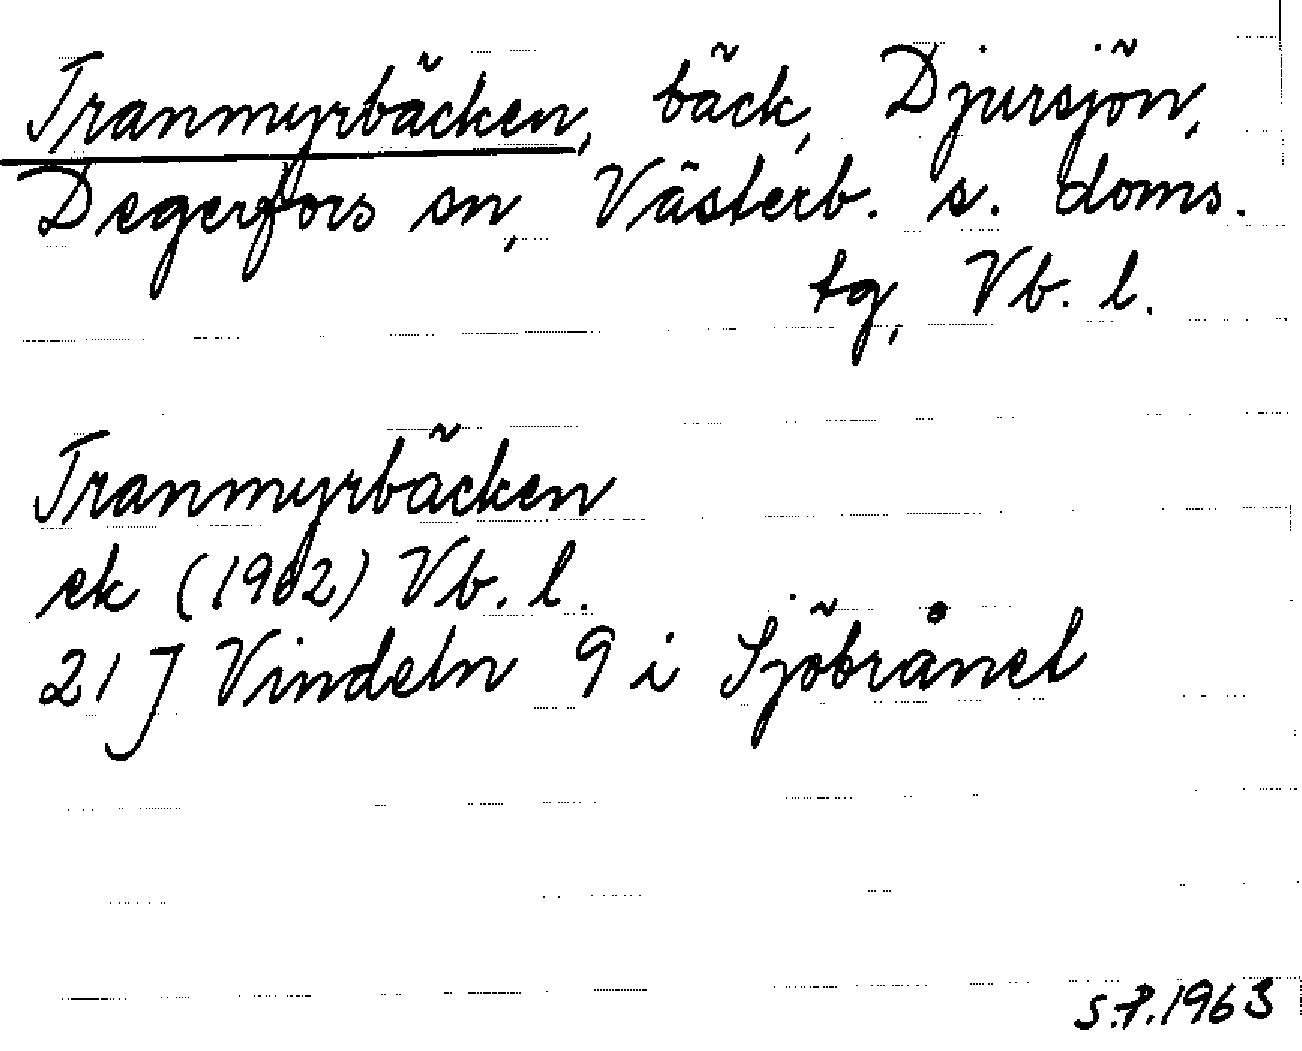 Tranmyrbäcken, bäck, Djursjön,
Degerfors sn, Västerb. s. doms.
tg, Vb. l.
Tranmyrbäcken
ek (1962) Vb. l.
21 J Vindeln 9 i Sjöbrånet
S.P. 1963